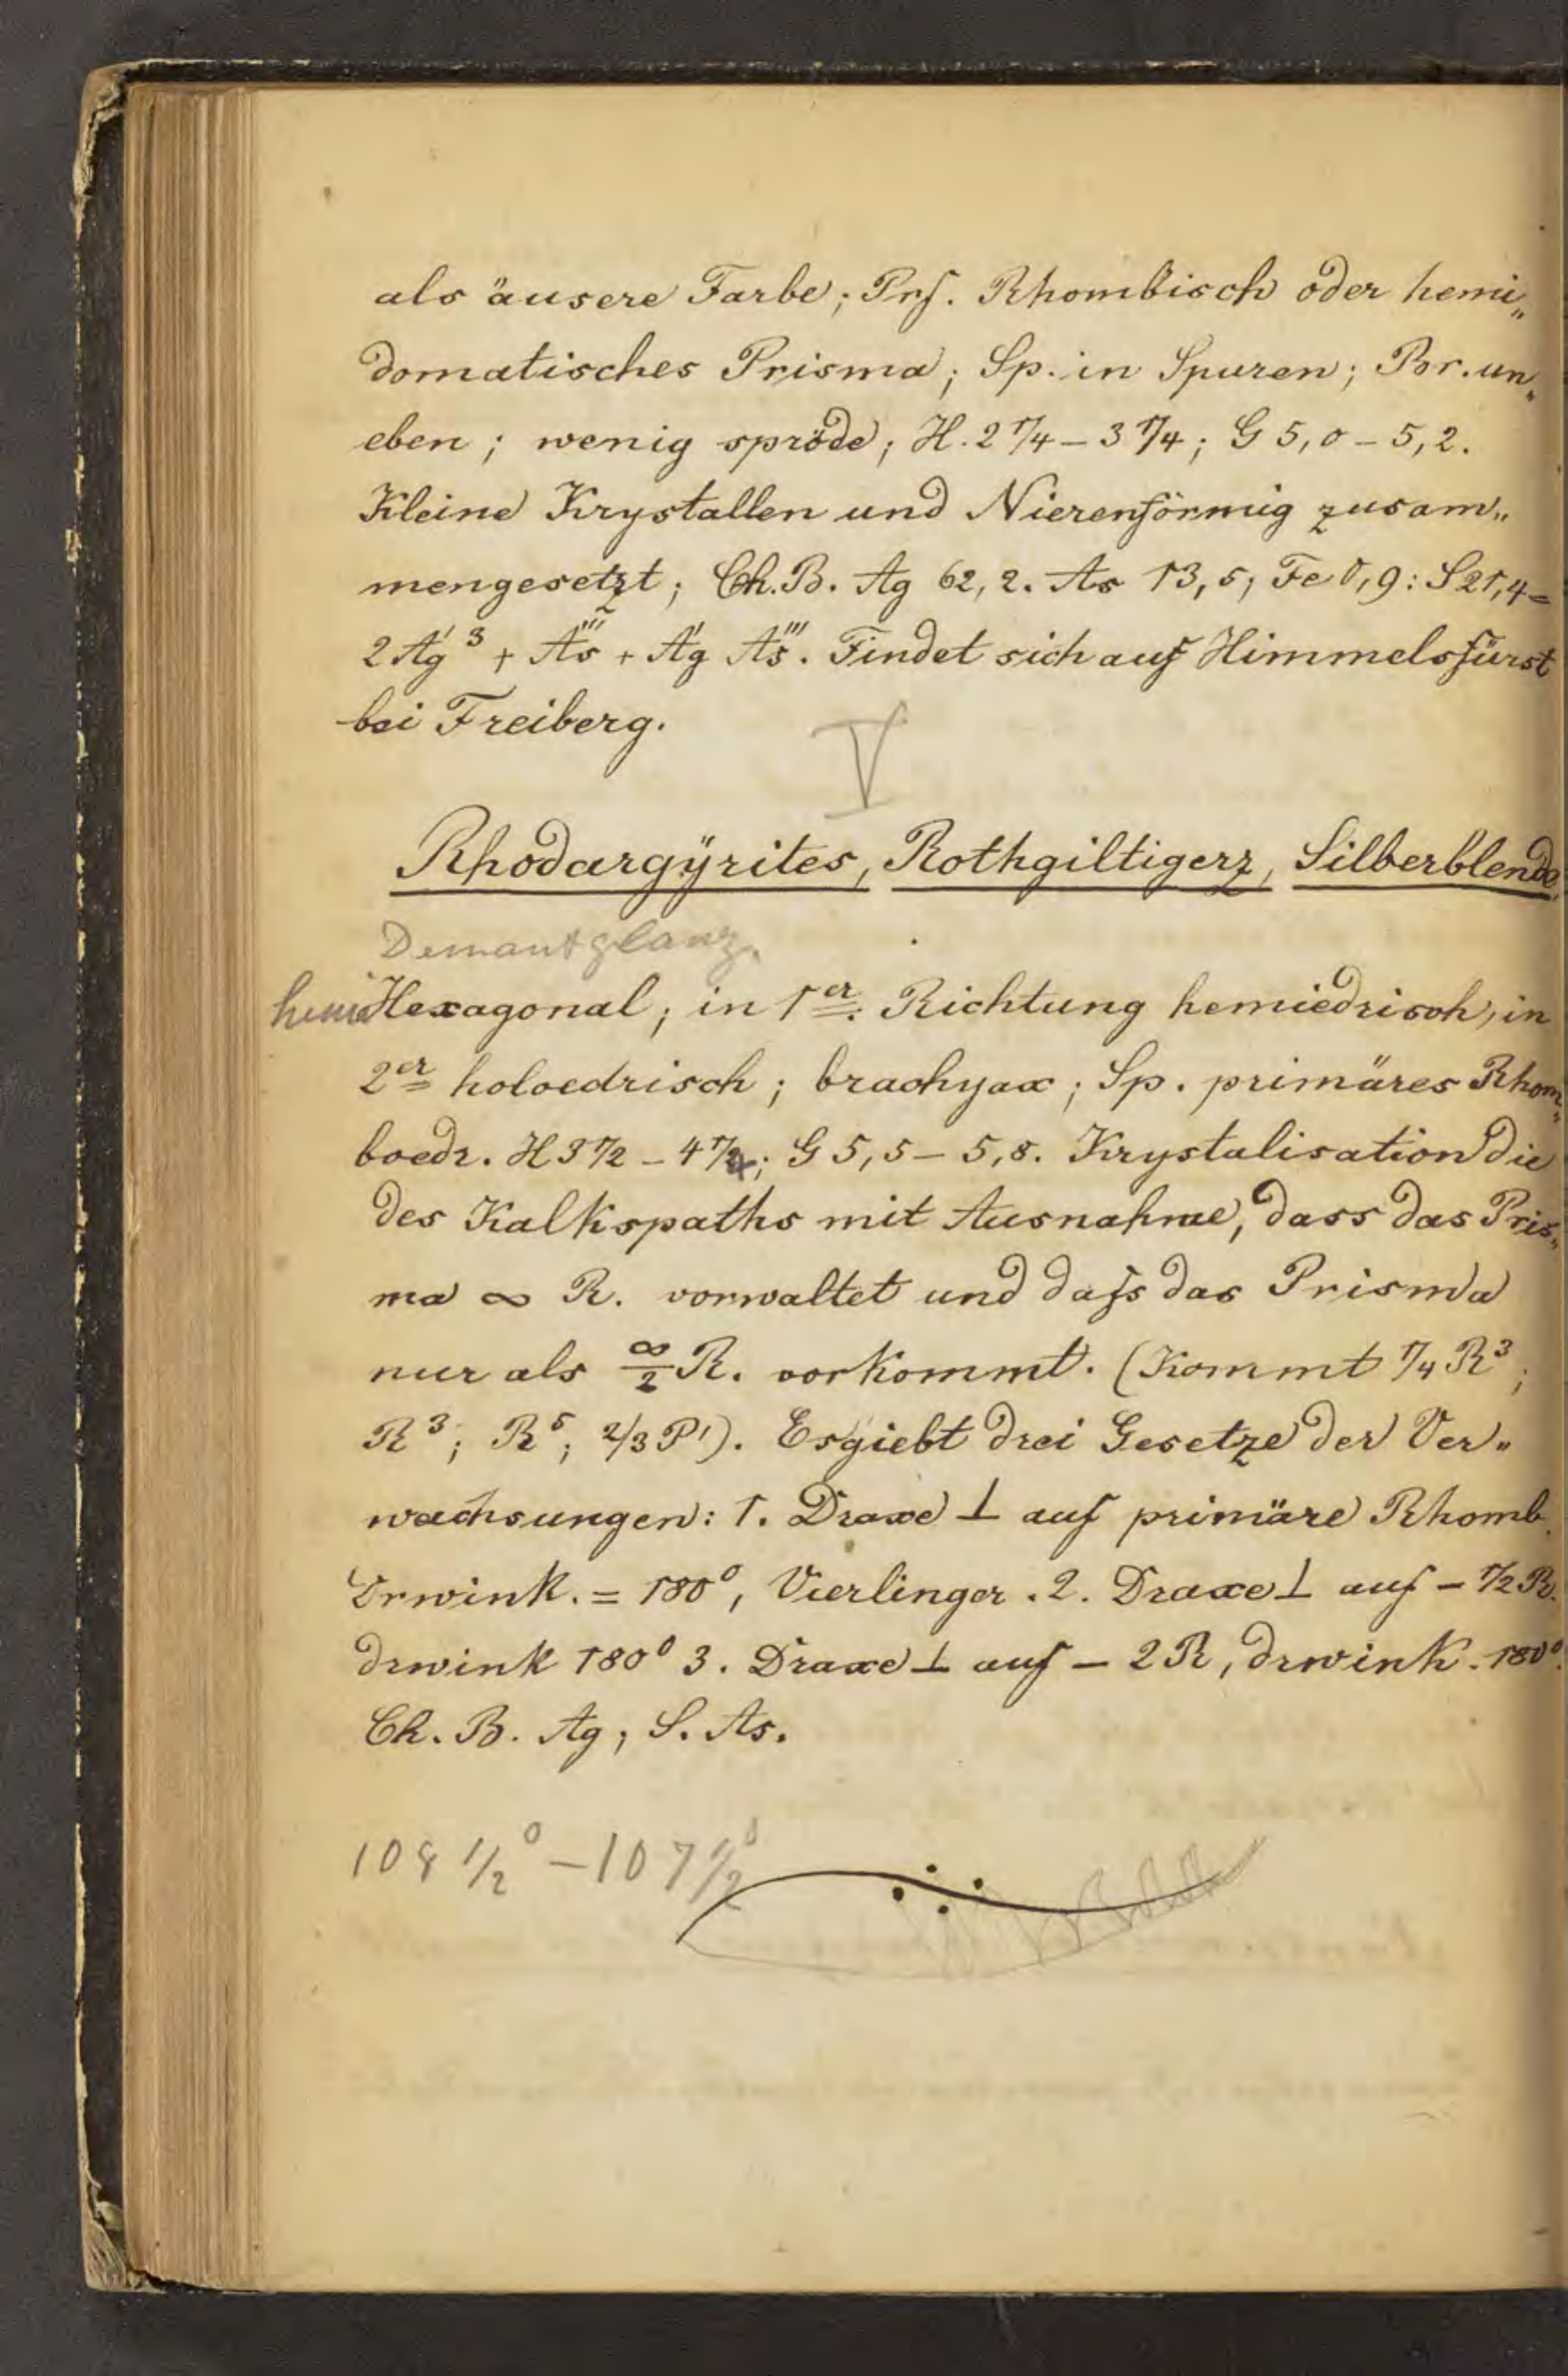 als äusere Farbe; Prf. Rhombisch oder hemi„
domatisches Prisma; Sp. in Spuren; Br. un„
eben; wenig spröde; H. 2 1/4 – 3 1/4; G 5,0 – 5,2.
Kleine Krystallen und Nierenförmig zusam„
mengesetzt; Ch. B. Ag 62,2. As 13,5; Fe 0,9: S 21,4 =
2 A̍g³ + A̎̍s + A̍g A̎̍s. Findet sich auf Himmelsfürst
bei Freiberg.
V
Rhodargÿrites, Rothgiltigerz, Silberblende
Demantglanz.
hemi Hexagonal; in 1er. Richtung hemiedrisch, in
2er holoedrisch; brachyax; Sp. primäres Rhom„
boedr. H 3 1/2 – 4 1/4; G 5,5 – 5,8. Krystalisation die
des Kalkspaths mit Ausnahme, dass das Pris„
ma ∞ R. vorwaltet und dafs das Prisma
nur als ∞/2 R. vorkommt. (Kommt 1/4 R³;
R³; R⁵; 2/3 P'). Es giebt drei Gesetze der Ver„
wachsungen: 1. Draxe ⊥ auf primäre Rhomb.
Drwink. = 180°, Vierlinger. 2. Draxe ⊥ auf – 1/2 R.
drwink 180° 3. Draxe ⊥ auf – 2R, drwink. 180°.
Ch. B. Ag; S. As.
108 1/2° – 107 1/2°